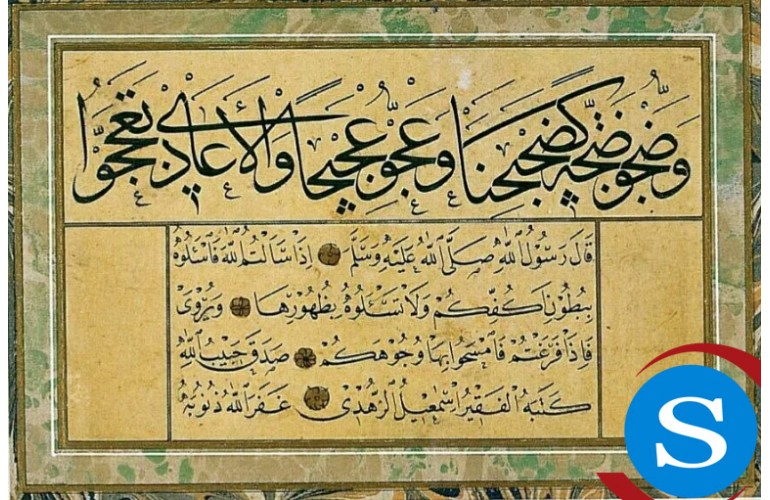 وَضَجُّوا ضَجَّةً كَضَجِيجِنَا وَعَجُّوا عَجِيجًا وَالْأَعَادِي تَعَجَّبُوا
قَالَ رَسُولُ اللهِ صَلَّى اللهُ عَلَيْهِ وَسَلَّمَ إِذَا سَأَلْتُمُ اللهَ فَاسْئَلُوهُ
بِبُطُونِ اَكُفِّكُمْ وَلَا تَسْئَلُوهُ بِظُهُورِهَا وَرُوِىَ
فَإِذَا فَرَغْتُمْ فَامْسَحُوا بِهَا وُجُوهَكُمْ صَدَقَ حَبِيبُ اللهِ
كَتَبَهُ الْفَقِيرُ اِسْمٰعِيلُ الزُّهْدِى غَفَرَ اللهُ ذُنُوبَهُ
S